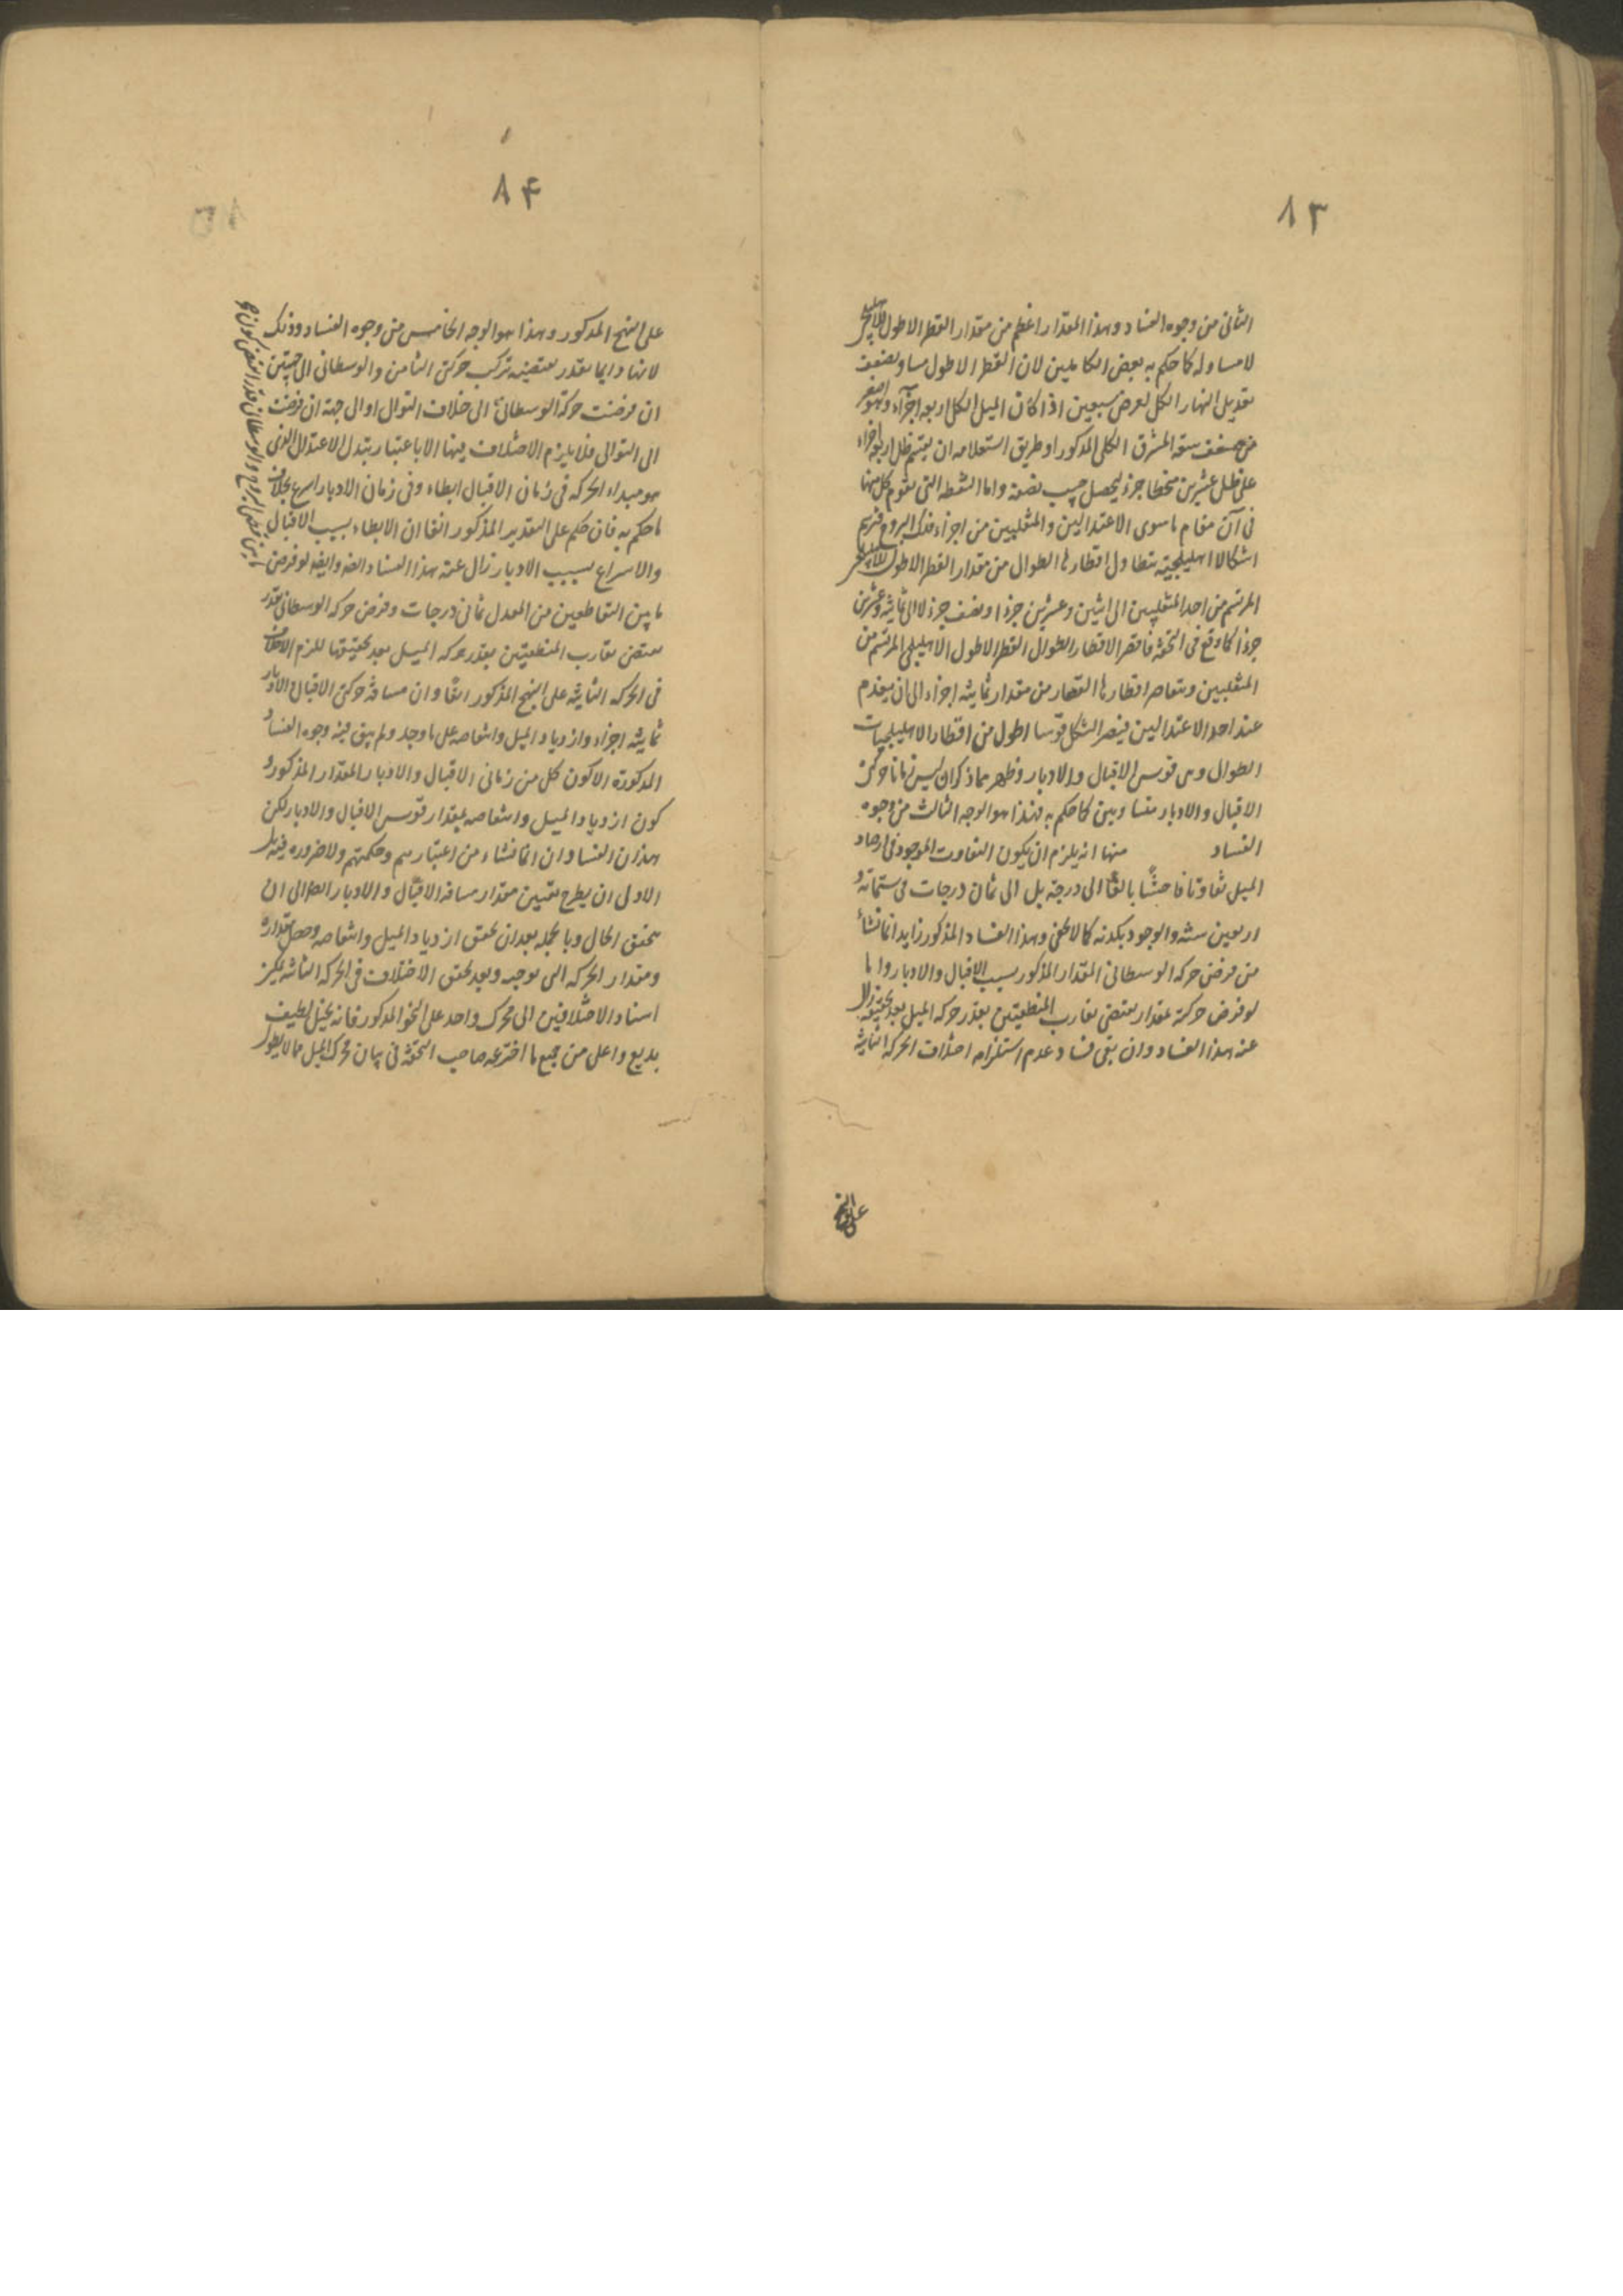 ٨٣
الثانى من وجوه الفساد وهذا المقدار اعظم من مقدار القطر الاطول للاهليلجى
لا مساو له كما حكم به بعض الكاملين لان القطر الاطول مساو لضعف
تعديل النهار الكلى لعرض سبعين اذا كان الميل الكلى اربعة اجزاء وهو اصغر
من ضعف سعة المشرق الكلى المذكور وطريق استعلامه ان يقسم ظل اربعة اجزاء
على ظل عشرين منحطا جزء ليحصل جيب نصفه واما النقطة التى تقوم كل منها
فى آن مقام ما سوى الاعتدالين والمنقلبين من اجزاء فلك البروج فترسم
اشكالا اهليلجية يتطاول اقطارها الطوال من مقدار القطر الاطول للاهليلجى
المرتسم من احد المنقلبين الى اثنين وعشرين جزءا ونصف جزء لا الى ثمانية وعشرين
جزءا كما وقع فى التحفة فاقصر الاقطار الطوال القطر الاطول الاهليلجى المرتسم من
المنقلبين ويتقاصر اقطارها القصار من مقدار ثمانية اجزاء الى ان ينعدم
عند احد الاعتدالين فيصير الشكل قوسا اطول من اقطار الاهليلجيات
الطوال وهى قوس الاقبال والادبار وظهر مما ذكر ان ليس زمانا حركتى
الاقبال والادبار متساويين كما حكم به فهذا هو الوجه الثالث من وجوه
الفساد منها انه يلزم ان يكون التفاوت الموجود فى ارصاد
الميل تفاوتا فاحشا بالغا الى درجة بل الى ثمان درجات فى ستمائة و
اربعين سنة والوجود يكذبه كما لا يخفى وهذا الفساد المذكور زايد انما نشأ
من فرض حركة الوسطانى المقدار المذكور بسبب الاقبال والادبار واما
لو فرض حركته بمقدار يقتضى تقارب المنطقتين بقدر حركة الميل بعد تحقيقه زال
عنه هذا الفساد وان بقى فساد عدم استلزام اختلاف الحركة الثانية
على النهج
٨٤
على النهج المذكور وهذا هو الوجه الخامس من وجوه الفساد وذلك
لانها دايما بقدر يقتضيه تركب حركتى الثامن والوسطانى الى جهتين
ان فرضت حركة الوسطانى الى خلاف التوالى او الى جهة ان فرضت
الى التوالى فلا يلزم الاختلاف فيها الا باعتبار تبدل الاعتدال الذى
هو مبداء الحركة فى زمان الاقبال ابطاء وفى زمان الادبار اسرع بخلاف
ما حكم به فان حكم على التقدير المذكور انفا ان الابطاء بسبب الاقبال
والاسراع بسبب الادبار زال عنه هذا الفساد ايضا وايضا لو فرض
ما بين التقاطعين من المعدل ثمانى درجات وفرض حركة الوسطانى بقدر
يقتضى تقارب المنطقتين بقدر حركة الميل بعد تحقيقها للزم الاختلاف
فى الحركة الثانية على النهج المذكور انفا وان مسافة حركتى الاقبال والادبار
ثمانية اجزاء وازدياد الميل وانتقاصه على ما وجد ولم يبق فيه وجوه الفساد
المذكورة الا كون كل من زمانى الاقبال والادبار المقدار المذكور و
كون ازدياد الميل وانتقاصه بمقدار قوس الاقبال والادبار لكن
هذان الفسادان انما نشاء من اعتبارهم وحكمتهم ولا ضرورة فيه بل
الاولى ان يطرح تعيين مقدار مسافة الاقبال والادبار الى ان
يتحقق الحال وبالجملة بعد ان تحقق ازدياد الميل وانتقاصه وحصل مقداره
ومقدار الحركة التى توجبه وبعد تحقق الاختلاف فى الحركة الثانية يمكن
اسناد الاختلافين الى محرك واحد على النحو المذكور فانه تخيل لطيف
بديع واعلى من جميع ما اخترعه صاحب التحفة فى بيان محرك الميل مما لا يطول